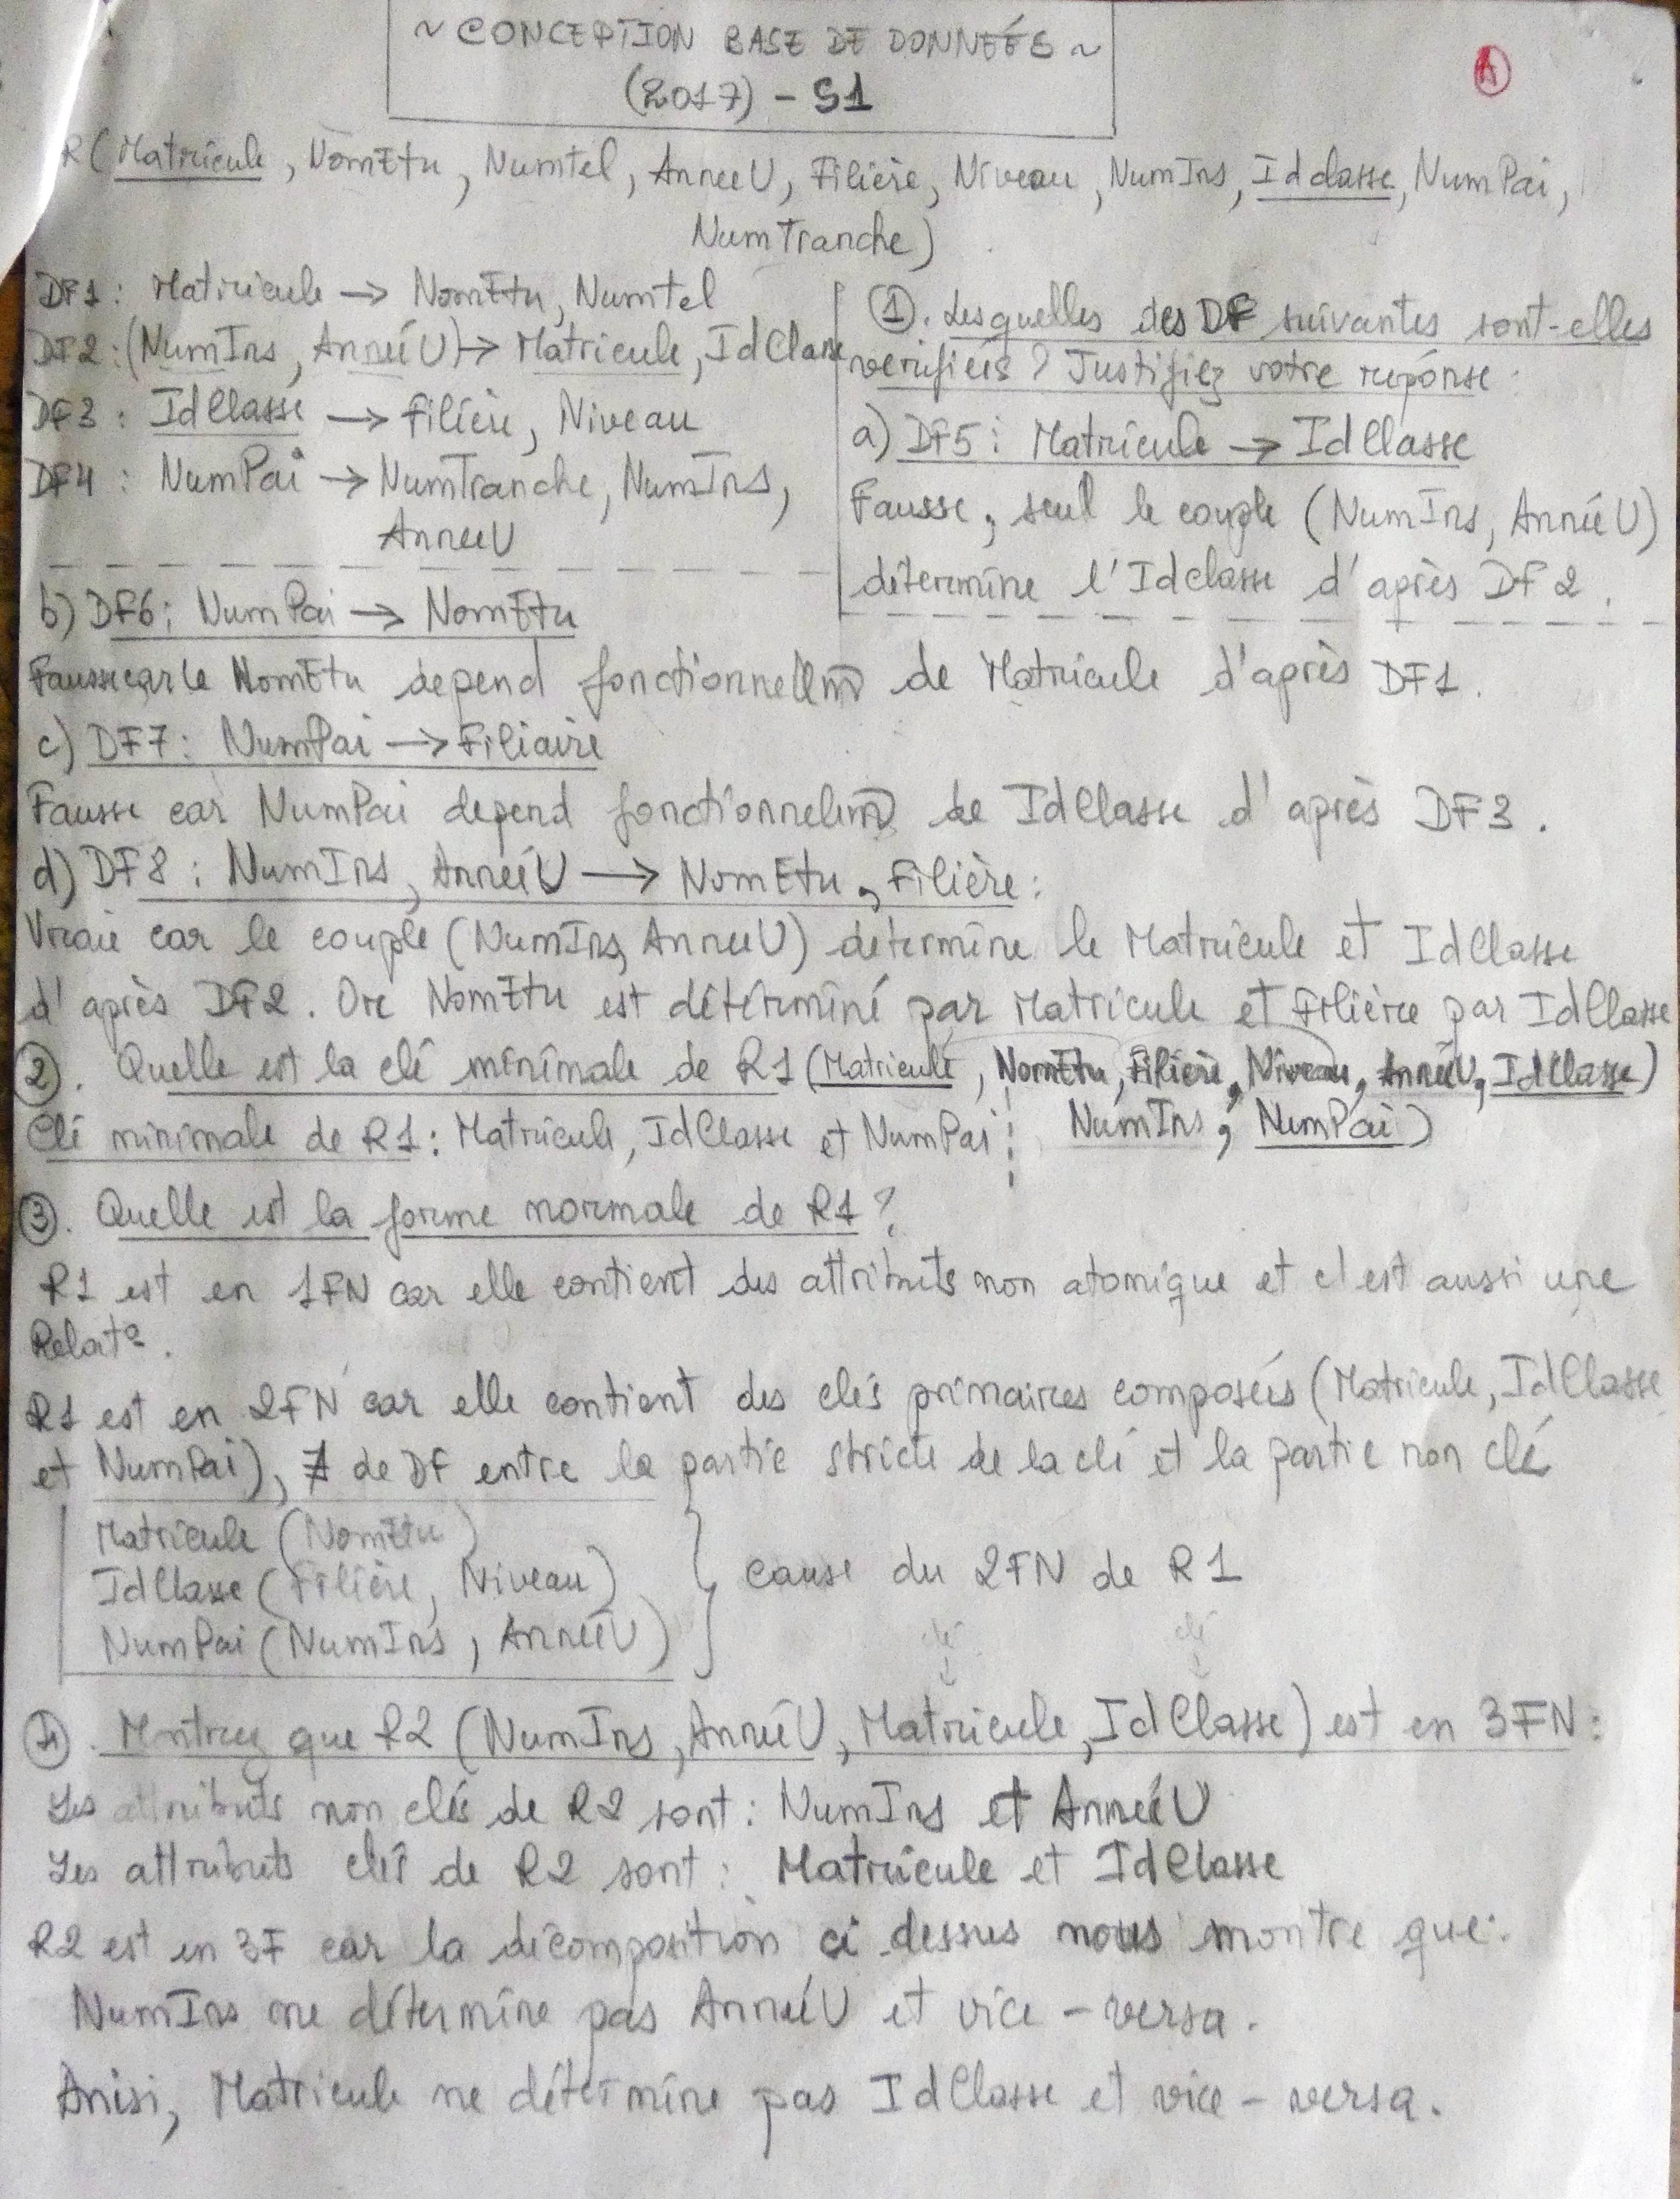 ~ CONCEPTION BASE DE DONNÉES ~
(2017) - S1
A
R(Matricule, NomEtu, Numtel, AnneeU, Filière, Niveau, NumIns, Idclasse, NumPai,
NumTranche)
DF1 : Matricule → NomEtu, Numtel
DF2 : (NumIns, AnnéeU) → Matricule, IdClasse
DF3 : IdClasse → Filière, Niveau
DF4 : NumPai → NumTranche, NumIns,
AnneeU
①. Lesquelles des DF suivantes sont-elles
verifiées ? Justifiez votre réponse :
a) DF5 : Matricule → IdClasse
Fausse, seul le couple (NumIns, AnnéeU)
détermine l'Idclasse d'après DF2.
b) DF6 : NumPai → NomEtu
Fausse car le NomEtu depend fonctionnellm̅ de Matricule d'après DF1.
c) DF7 : NumPai → Filiaire
Fausse car NumPai depend fonctionnelm̅ de IdClasse d'après DF3.
d) DF8 : NumIns, AnnéeU → NomEtu, Filière :
Vraie car le couple (NumIns, AnneeU) détermine le Matricule et IdClasse
d'après DF2. Or NomEtu est déterminé par Matricule et Filière par IdClasse
②. Quelle est la clé minimale de R1 (Matricule, NomEtu, Filière, Niveau, AnnéeU, IdClasse)
NumIns, NumPai)
Clé minimale de R1 : Matricule, IdClasse et NumPai
③. Quelle est la forme normale de R1 ?
R1 est en 1FN car elle contient des attributs non atomique et c'est aussi une
Relat°.
R1 est en 2FN car elle contient des clés primaires composées (Matricule, IdClasse
et NumPai), ∄ de DF entre la partie stricte de la clé et la partie non clé
Matricule (NomEtu)
IdClasse (Filière, Niveau)
NumPai (NumIns, AnnéeU)
cause du 2FN de R1
clé clé
④. Montrez que R2 (NumIns, AnnéeU, Matricule, IdClasse) est en 3FN :
Les attributs non clés de R2 sont : NumIns et AnnéeU
Les attributs clé de R2 sont : Matricule et IdClasse
R2 est en 3F car la décomposition ci dessus nous montre que :
NumIns ne détermine pas AnnéeU et vice-versa.
Anisi, Matricule ne détermine pas IdClasse et vice-versa.